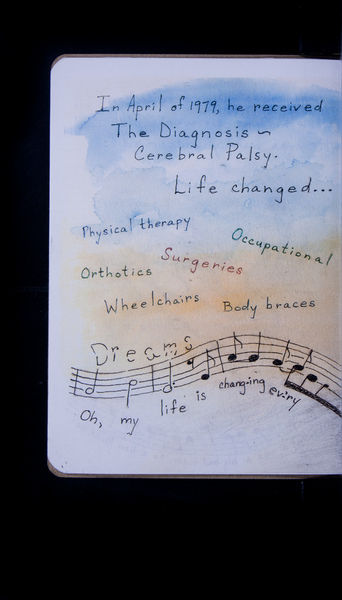 In April of 1979, he received
The Diagnosis ~
Cerebral Palsy.
Life changed...
Physical therapy
Occupational
Surgeries
Orthotics
Wheelchairs
Body braces
Dreams
Oh, my life is changing every